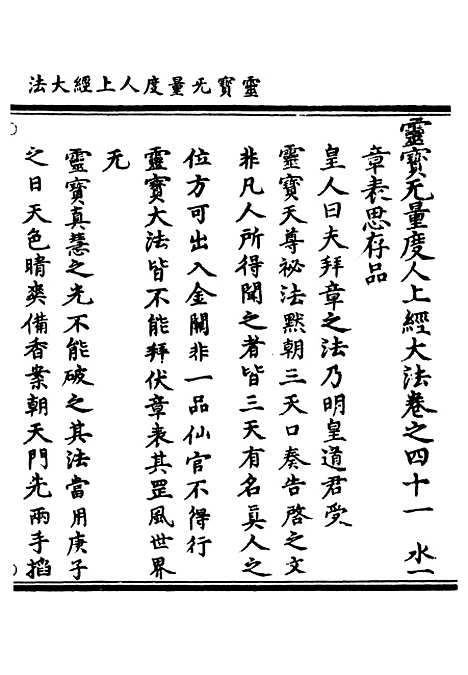 靈寶无量度人上經大法
靈寶无量度人上經大法卷之四十一 水一
章表思存品
皇人曰夫拜章之法乃明皇道君受
靈寶天尊祕法默朝三天口奏告啓之文
非凡人所得聞之者皆三天有名真人之
位方可出入金闕非一品仙官不得行
靈寶大法皆不能拜伏章表其罡風世界
无
靈寶真慧之光不能破之其法當用庚子
之日天色晴爽備香案朝天門先兩手搯